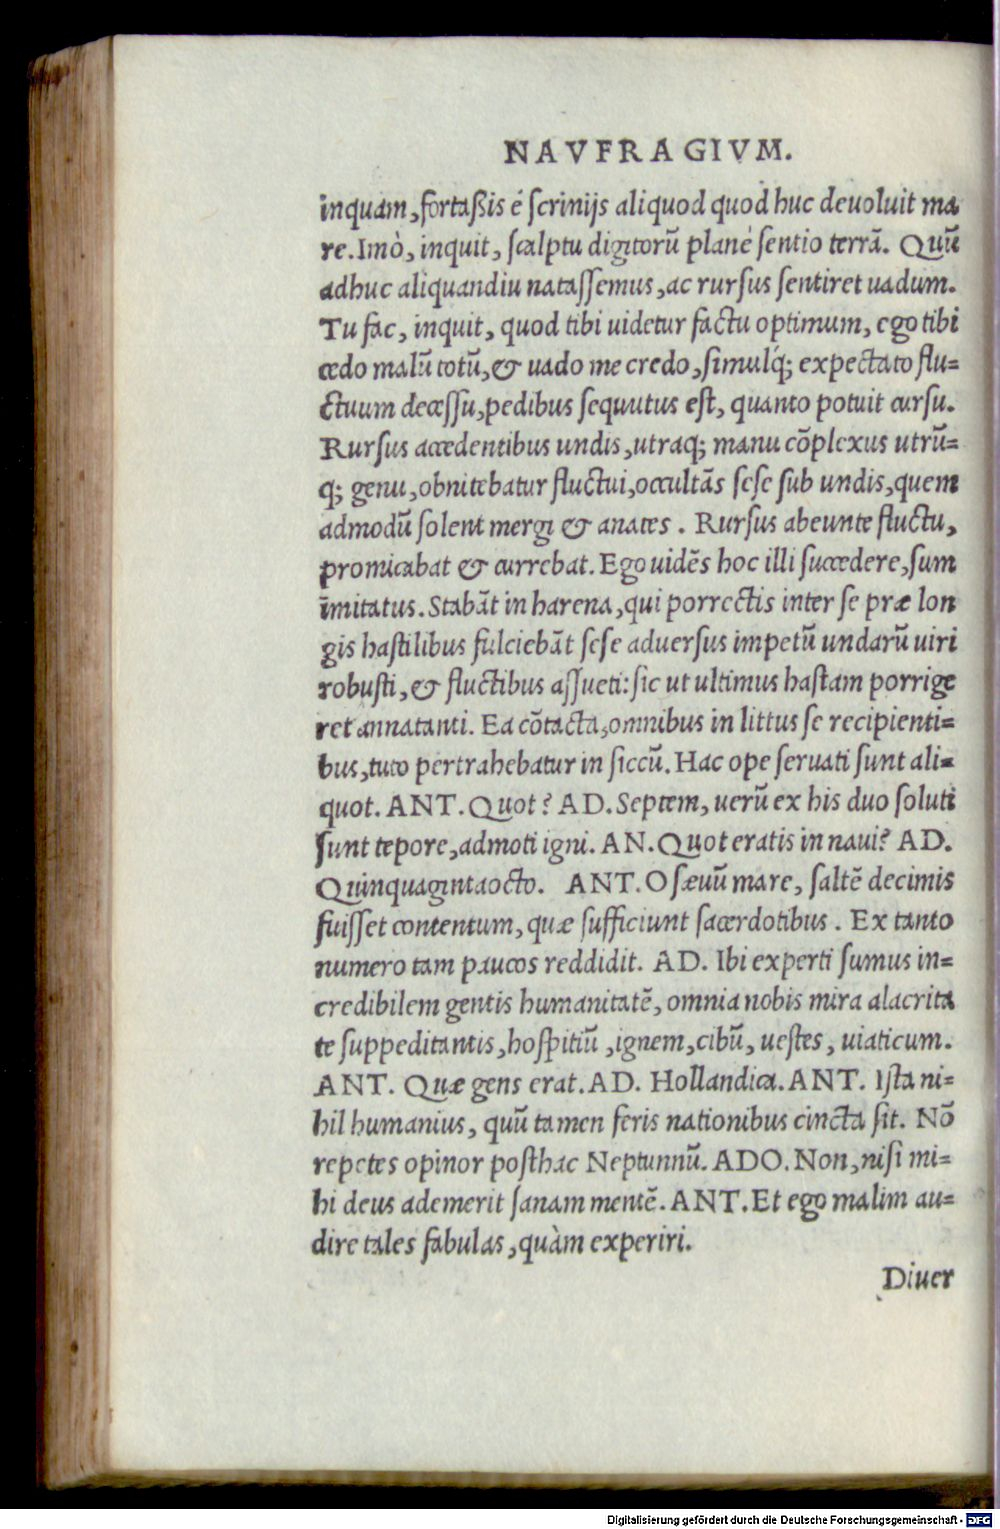 NAVFRAGIVM.
inquam, fortaßis é ſcrinijs aliquod quod huc deuoluit ma
re. Imò, inquit, ſcalptu digitorū planè ſentio terrā. Quū
adhuc aliquandiu nataſſemus, ac rurſus ſentiret uadum.
Tu fac, inquit, quod tibi uidetur factu optimum, ego tibi
cedo malū totū, & uado me credo, ſimulq́; expectato flu-
ctuum deceſſu, pedibus ſequutus eſt, quanto potuit curſu.
Rurſus accedentibus undis, utraq; manu cōplexus utrū-
q; genu, obnitebatur fluctui, occultās ſeſe ſub undis, quem
admodū ſolent mergi & anates. Rurſus abeunte fluctu,
promicabat & currebat. Ego uidēs hoc illi ſuccedere, ſum
īmitatus. Stabāt in harena, qui porrectis inter ſe præ lon
gis haſtilibus fulciebāt ſeſe aduerſus impetū undarū uiri
robuſti, & fluctibus aſſueti: ſic ut ultimus haſtam porrige
ret annatanti. Ea cōtacta, omnibus in littus ſe recipienti-
bus, tuto pertrahebatur in ſiccū. Hac ope ſeruati ſunt ali-
quot. ANT. Quot? AD. Septem, uerū ex his duo ſoluti
ſunt tepore, admoti igni. AN. Quot eratis in naui? AD.
Quinquagintaocto. ANT. O ſæuū mare, ſaltē decimis
fuiſſet contentum, quæ ſufficiunt ſacerdotibus. Ex tanto
numero tam paucos reddidit. AD. Ibi experti ſumus in-
credibilem gentis humanitatē, omnia nobis mira alacrita
te ſuppeditantis, hoſpitiū, ignem, cibū, ueſtes, uiaticum.
ANT. Quæ gens erat. AD. Hollandica. ANT. Iſta ni-
hil humanius, quū tamen feris nationibus cincta ſit. Nō
repetes opinor poſthac Neptunnū. ADO. Non, niſi mi-
hi deus ademerit ſanam mentē. ANT. Et ego malim au-
dire tales fabulas, quàm experiri.
Diuer
Digitalisierung gefördert durch die Deutsche Forschungsgemeinschaft - DFG